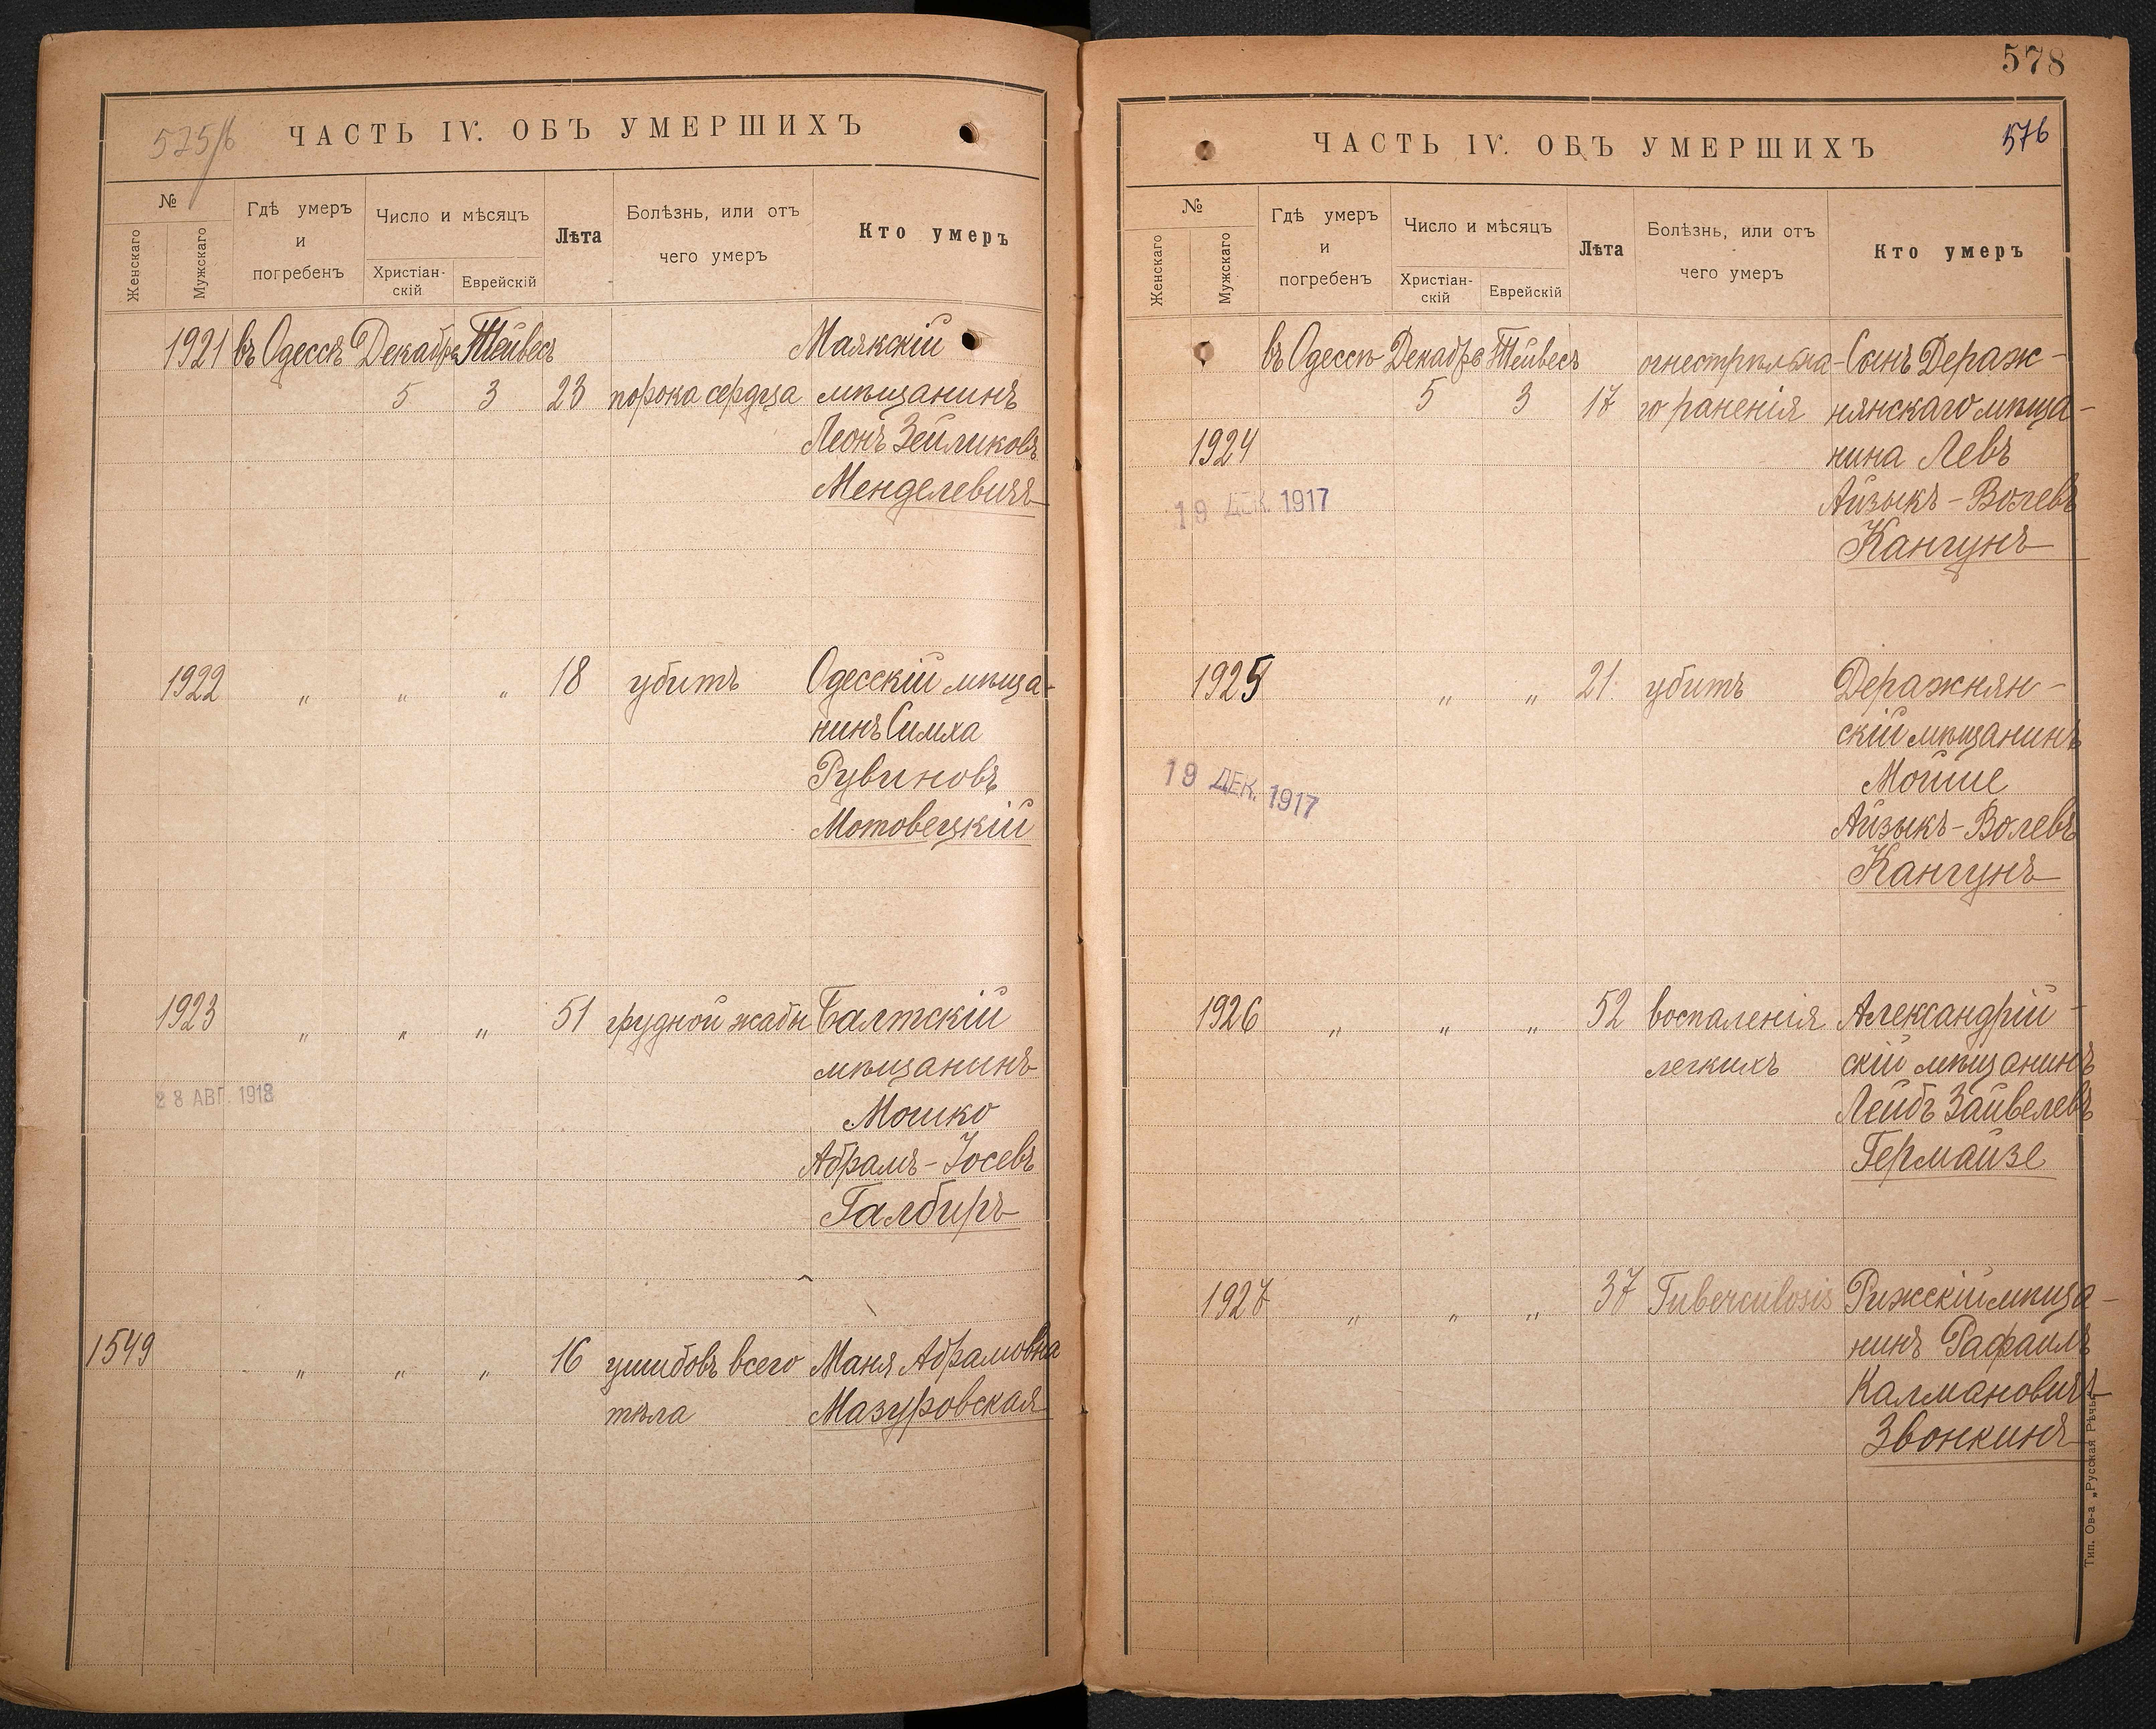 575/б
ЧАСТЬ IV. ОБЪ УМЕРШИХЪ
№
Женскаго
Мужскаго
Гдѣ умеръ
и
погребенъ
Число и мѣсяцъ
Христіан-
скій
Еврейскій
Лѣта
Болѣзнь, или отъ
чего умеръ
Кто умеръ
1921 въ Одессѣ Декабрѣ Тейвесъ Маякскій
5 3 23 порока сердца мѣщанинъ
Леонъ Зейликовъ
Менделевичъ
1922 „ „ „ 18 убитъ Одесскій мѣща-
нинъ Симха
Рувиновъ
Мотовецкій
1923 „ „ „ 51 грудной жабы Балтскій
мѣщанинъ
28 АВГ. 1918
Мошко
Абрамъ-Іосевъ
Галбиръ
1549 „ „ „ 16 ушибовъ всего Маня Абрамовна
тѣла Мазуровская
578
576
ЧАСТЬ IV. ОБЪ УМЕРШИХЪ
№
Женскаго
Мужскаго
Гдѣ умеръ
и
погребенъ
Число и мѣсяцъ
Христіан-
скій
Еврейскій
Лѣта
Болѣзнь, или отъ
чего умеръ
Кто умеръ
въ Одессѣ Декабрѣ Тейвесъ огнестрѣльна- Сынъ Дераж-
5 3 17 го раненія нянскаго мѣща-
1924 нина Левъ
19 ДЕК. 1917 Айзыкъ-Волевъ
Кангунъ
1925 „ „ 21. убитъ Деражнян-
скій мѣщанинъ
19 ДЕК. 1917 Мойше
Айзыкъ-Волевъ
Кангунъ
1926 „ „ „ 52 воспаленія Александрій-
легкихъ скій мѣщанинъ
Лейбъ Зайвелевъ
Гермайзе
1927 „ „ „ 37 Tuberculosis Рижскій мѣща-
нинъ Рафаилъ
Калмановичъ
Звонкинъ
Тип. Ов-а „Русская Рѣчь"